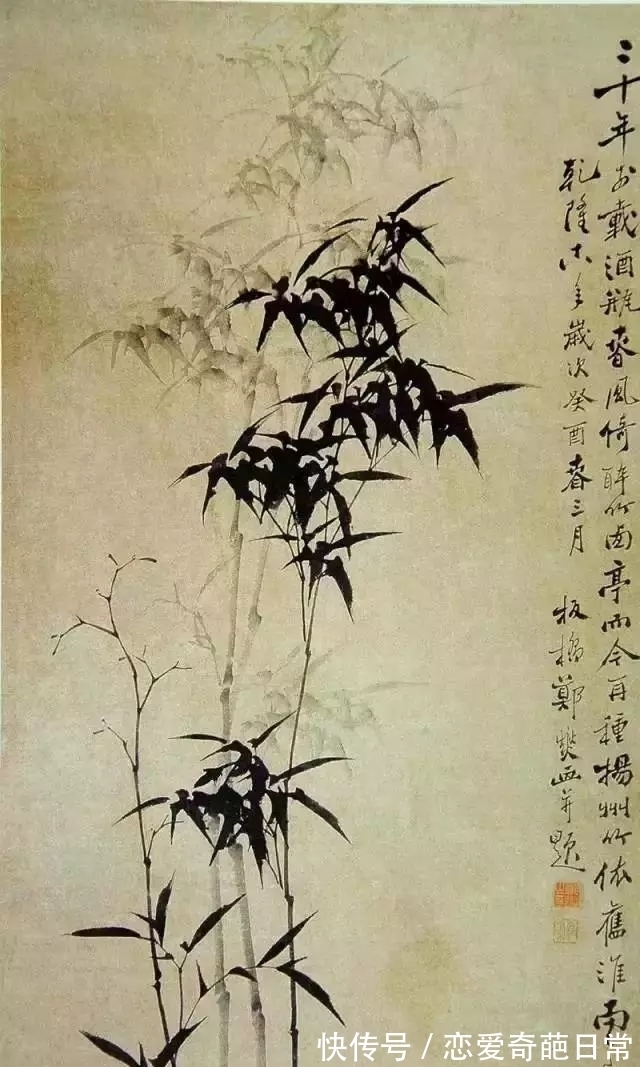 三十年前載酒瓶春風倚醉竹西亭而今再種揚州竹依舊淮南
乾隆十八年歲次癸酉春三月
板橋鄭燮画并題
快传号 / 恋爱奇葩日常